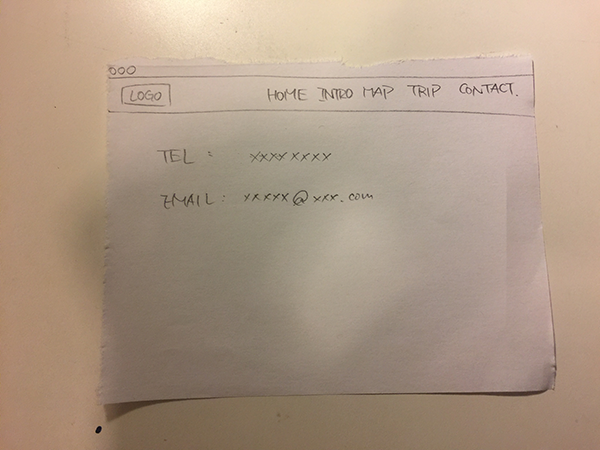 LOGO HOME INTRO MAP TRIP CONTACT.
TEL : xxxxxxxx
EMAIL : xxxxx@xxx.com